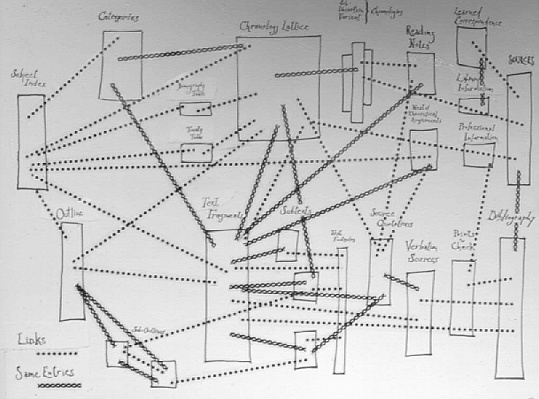 Categories
Chronology Lattice
} Chronologies
Reading
Notes
Learned
Correspondence
Library
Information
SOURCES
Subject
Index
Professional
Information
Outline
Text
Fragments
Subtexts
Source
Quotations
Verbatim
Sources
Points
Check
Bibliography
Sub-Outlines
Links
Same Entries